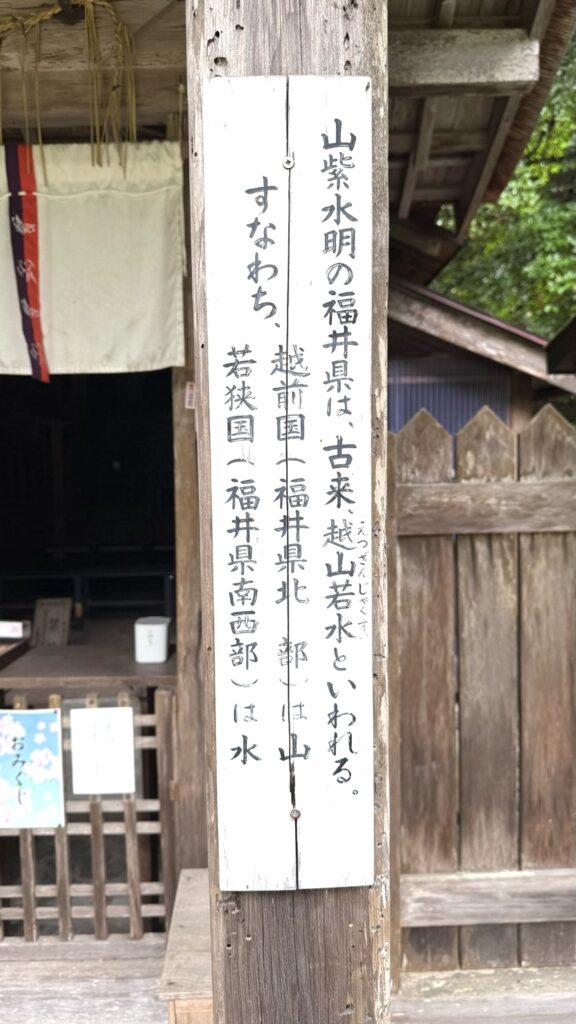 山紫水明の福井県は、古来、越山若水といわれる。
えつざんじゃくすい
すなわち、
越前国（福井県北　部）は山
若狭国（福井県南西部）は水
おみくじ